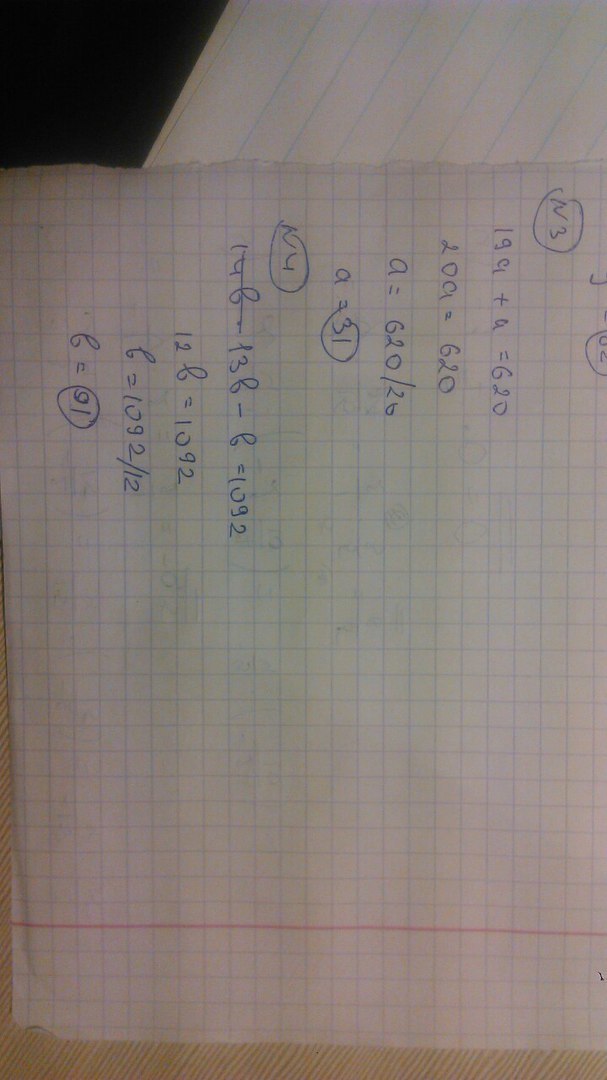 N3
19a + a = 620
20a = 620
a = 620/20
a = 31
N4
14b - 13b - b = 1092
12b = 1092
b = 1092/12
b = 91